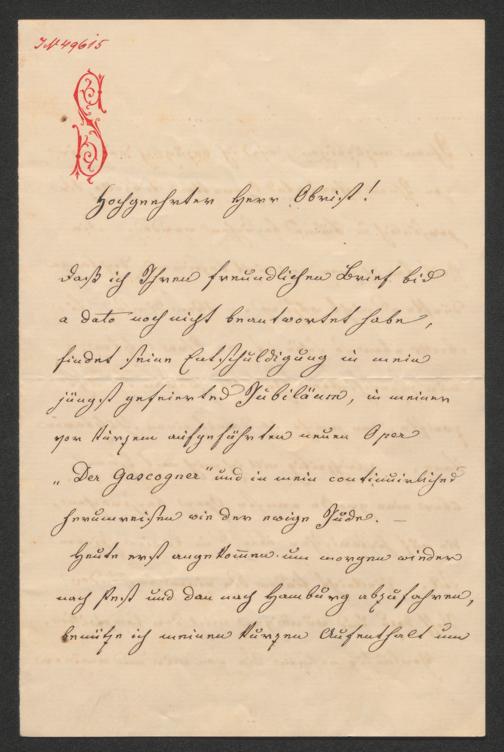 IN 49615
S
Hochgeehrter Herr Obrist!
Daß ich Ihren freundlichen Brief bis
a dato noch nicht beantwortet habe,
findet seine Entschuldigung in mein
jüngst gefeiertes Jubiläum, in meiner
vor kurzem aufgeführten neuen Oper
„Der Gascogner" und in mein continuirliches
herumreisen wie der ewige Jude. —
Heute erst angekom̄en um morgen wieder
nach Pest und dan nach Hamburg abzufahren,
benütze ich meinen kurzen Aufenthalt um